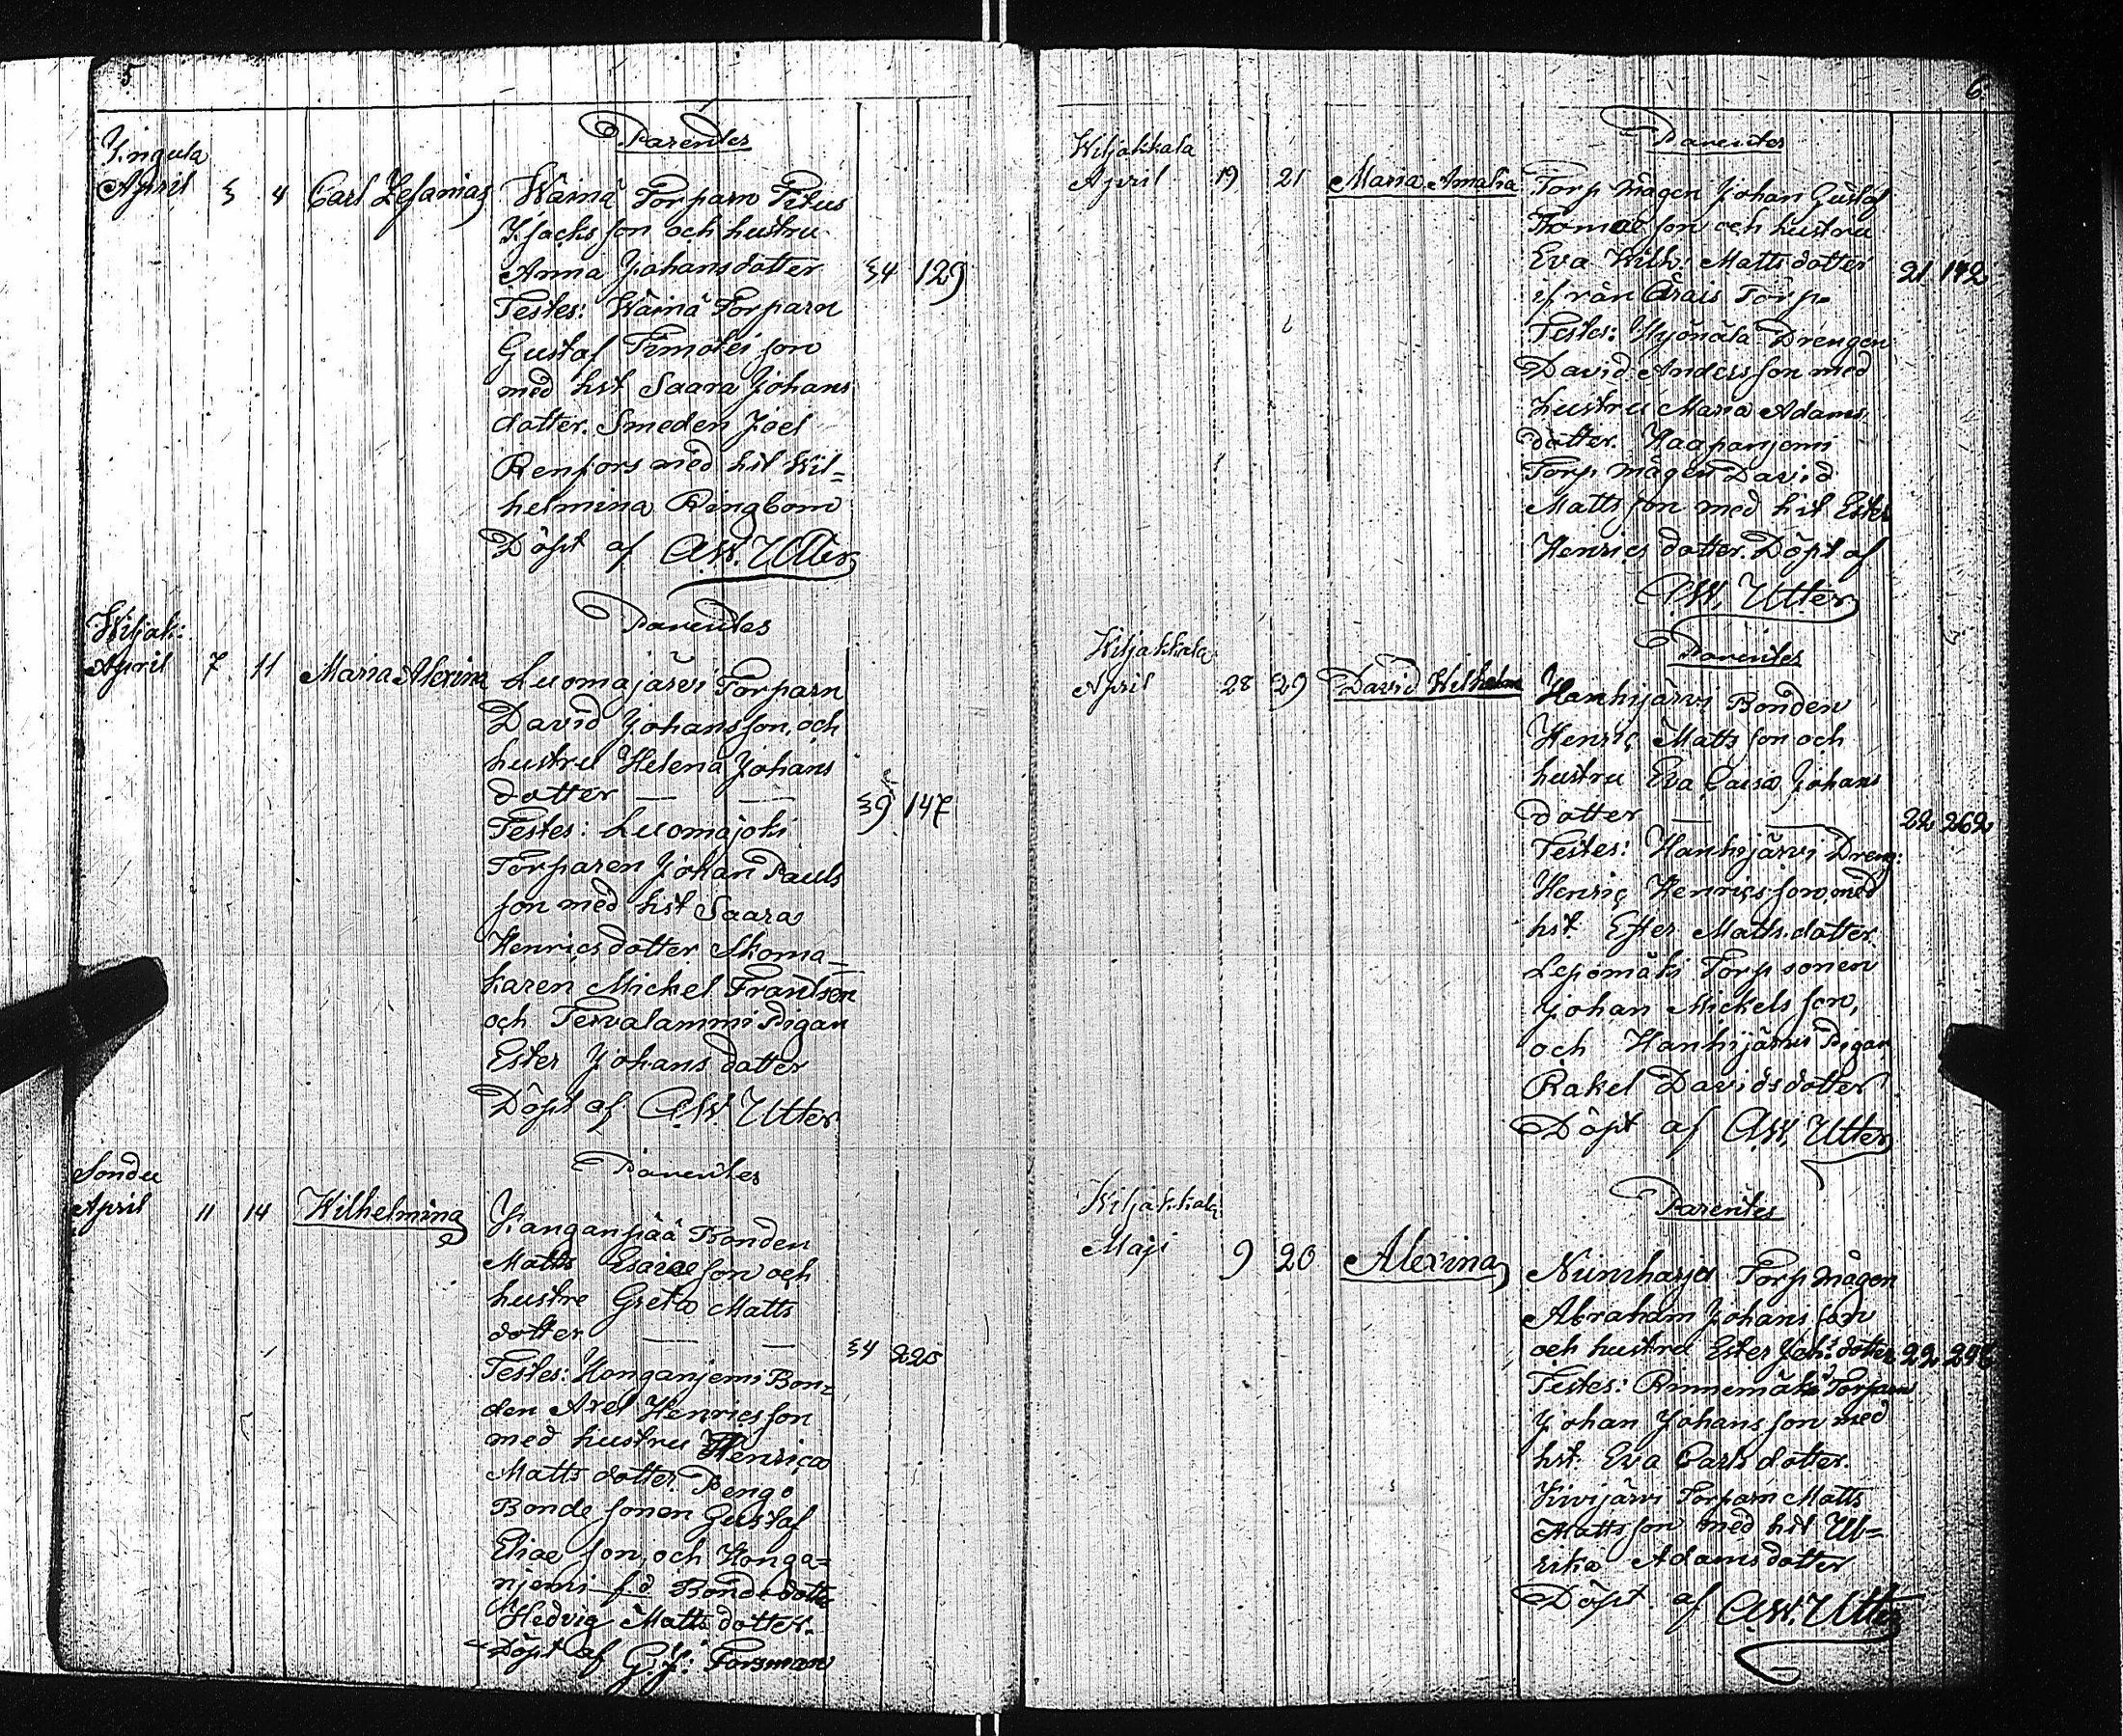 5
Parentes
Yingula
April 3 4 Carl Zefanias Wäinä Torparn Titus
Isachsson och hustru
Anna Johansdotter 34 129
Testes: Wäinä Torparn
Gustaf Timoteison
med hst Saara Johans
dotter. Smeden Joel
Renfors med hst Wil-
helmina Ringbom
Döpt af A.W. Utter
Parentes
Wiljak:
April 7 11 Maria Alexina Luomajärvi Torparn
David Johansson, och
hustru Helena Johans
dotter — — 39 147
Testes: Luomajoki
Torparen Johan Pauls
son med hst Saara
Henricsdotter Skoma-
karen Mickel Frantsson
och Tervalammi Pigan
Ester Johansdotter
Döpt af A.W. Utter
Parentes
April 11 14 Wilhelmina Kanganpää Bonden
Matts Esaiaeson och
hustru Greta Matts
dotter — — 34 225
Testes: Honganjemi Bon-
den Axel Henricsson
med hustru Henrica
Matts dotter, Pengo
Bonde sonen Gustaf
Eliae son, och Honga-
njemi f.d. Bonde dotter
Hedvig Matts dotter.
Döpt af G. J. Forsman
6.
Parentes
Wiljakkala
April 19 21 Maria Amalia Torp mågen Johan Gustaf
Thomae son och hustru
Eva Wilh: Matts dotter 21 142
ifrån Orais Torp.
Testes: Kyönälä Drengen
David Andersson med
hustru Maria Adams
dotter. Haapanjemi
Torp mågen David
Mattsson med hst Ester
Henrics dotter. Döpt af
A.W. Utter
Parentes
Wiljakkala
April 28 29 David Wilhelm Hanhijärvi Bonden
Henric Matts son och
hustru Eva Caisa Johans
dotter — — 22 262
Testes: Hanhijärvi Dreng:
Henric Henricsson, med
hst. Ester Matts dotter
Lepomäki Torpsonen
Johan Mickels son,
och Hanhijärvi Pigan
Rakel Davidsdotter
Döpt af A.W. Utter
Parentes
Wiljakkala
Maji 9 20 Alexina Niiniharja Torp mågen
Abraham Johansson
och hustru Ester Joh:s dotter 22
Testes: Rinnemäki Torparn
Johan Johansson med
hst. Eva Carls dotter.
Kivijärvi Torparn Matts
Mattsson med hst Ul-
rika Adamsdotter
Döpt af A.W. Utter